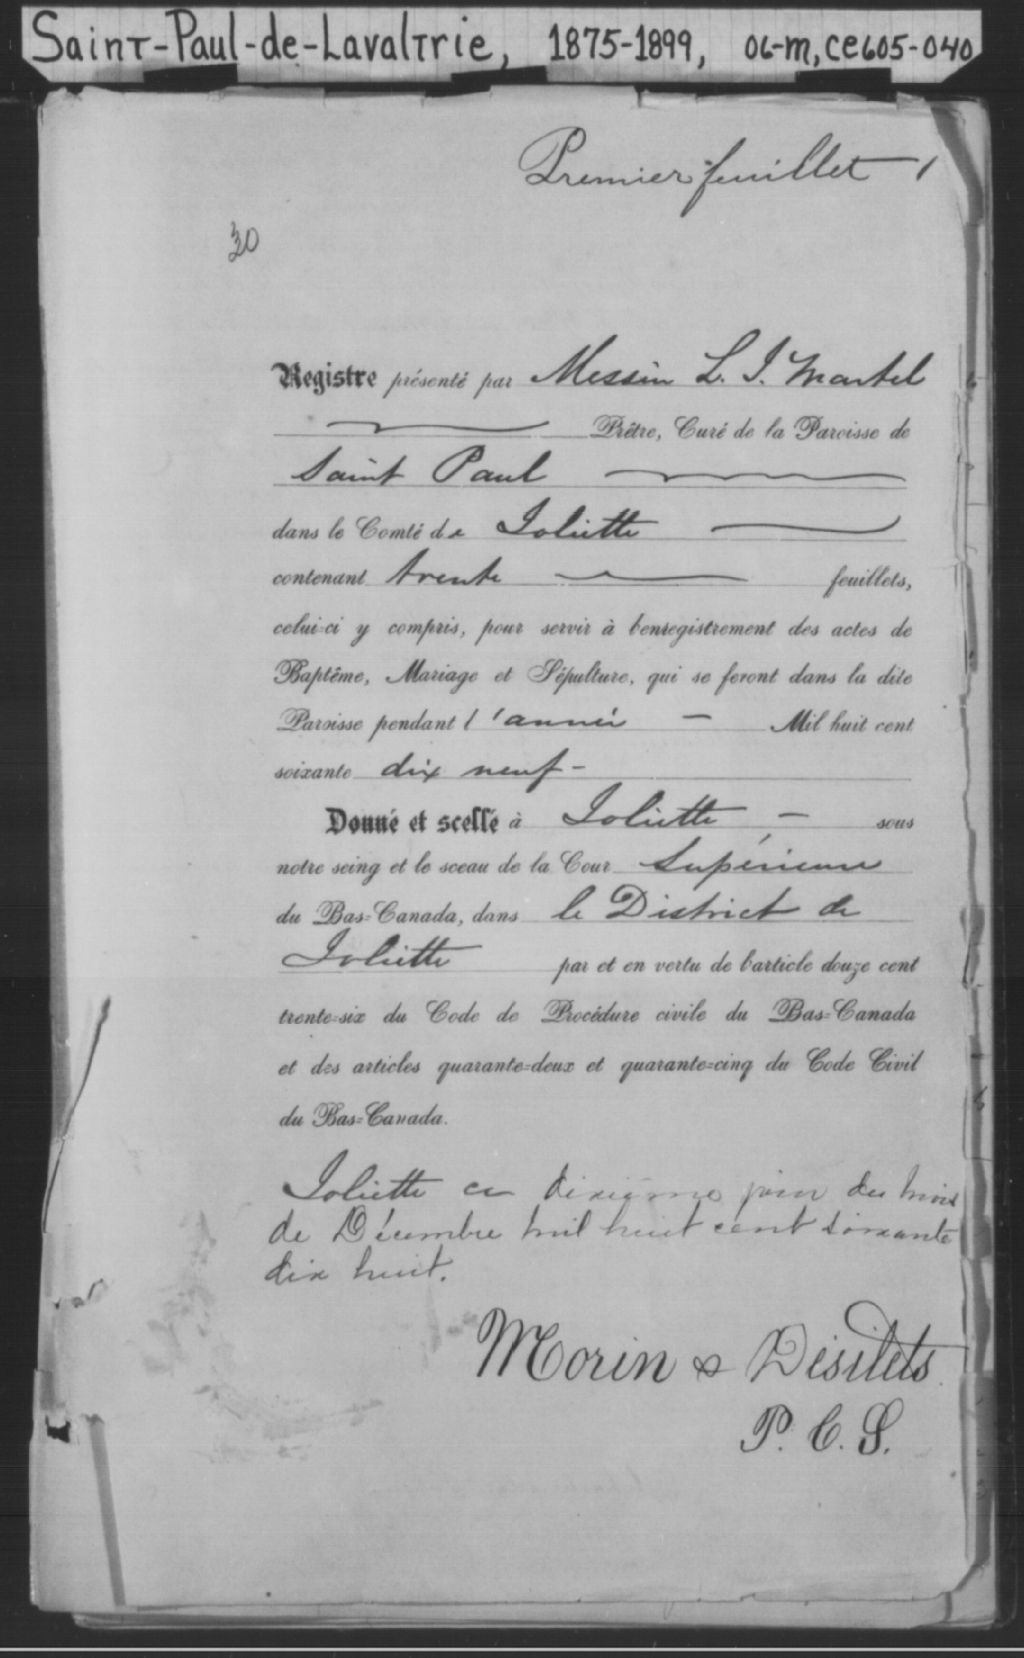 Saint-Paul-de-Lavaltrie, 1875-1899, 06-M, CE605-040
Premier feuillet 1
30
Registre présenté par Messire L. J. Martel
Prêtre, Curé de la Paroisse de
Saint Paul
dans le Comté de Joliette
contenant trente feuillets,
celui-ci y compris, pour servir à l'enregistrement des actes de
Baptême, Mariage et Sépulture, qui se feront dans la dite
Paroisse pendant l'année - Mil huit cent
soixante dix neuf -
Donné et scellé à Joliette - sous
notre seing et le sceau de la Cour Supérieure
du Bas-Canada, dans le District de
Joliette par et en vertu de l'article douze cent
trente-six du Code de Procédure civile du Bas-Canada
et des articles quarante-deux et quarante-cinq du Code Civil
du Bas-Canada.
Joliette ce dixième jour du mois
de Décembre mil huit cent soixante
dix huit.
Morin & Désilets
P. C. S.